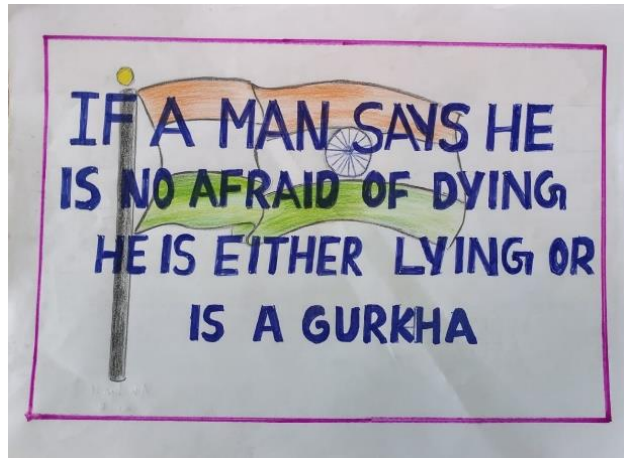 IF A MAN SAYS HE
IS NO AFRAID OF DYING
HE IS EITHER LYING OR
IS A GURKHA